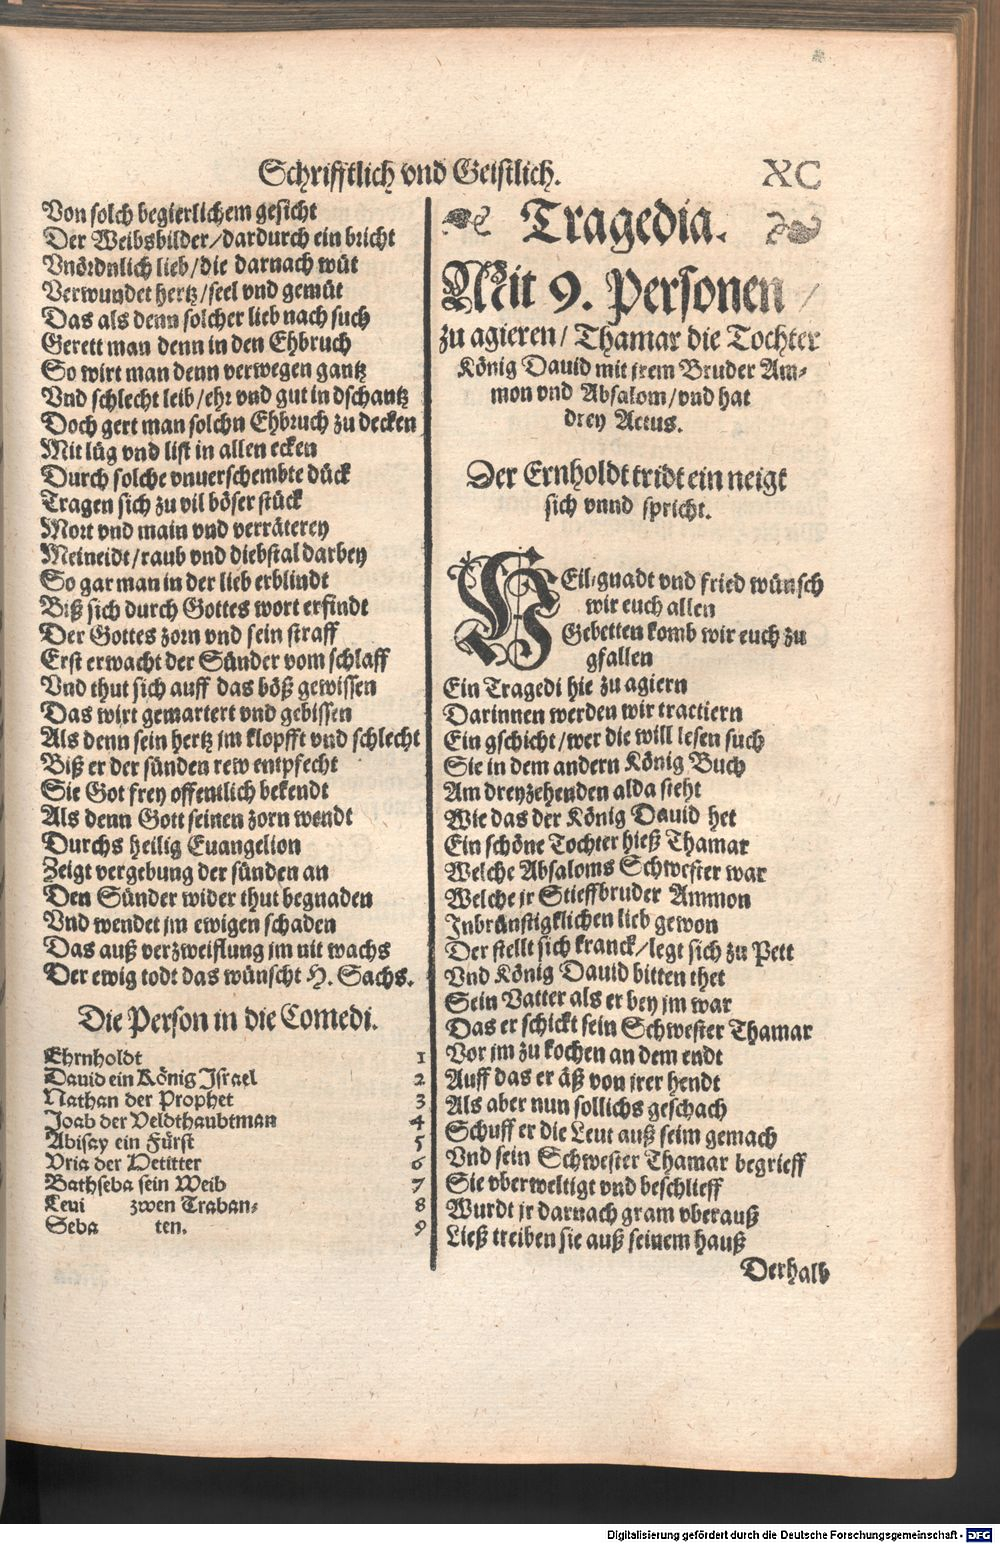 Schrifftlich vnd Geistlich.
XC
Von solch begierlichem gesicht
Der Weibsbilder/dardurch ein bricht
Vnördnlich lieb/die darnach wüt
Verwundet hertz/seel vnd gemüt
Das als denn solcher lieb nach such
Gerett man denn in den Ehbruch
So wirt man denn verwegen gantz
Vnd schlecht leib/ehr vnd gut in dschantz
Doch gert man solchn Ehbruch zu decken
Mit lüg vnd list in allen ecken
Durch solche vnuerschembte dück
Tragen sich zu vil böser stück
Mort vnd main vnd verräterey
Meineidt/raub vnd diebstal darbey
So gar man in der lieb erblindt
Biß sich durch Gottes wort erfindt
Der Gottes zorn vnd sein straff
Erst erwacht der Sünder vom schlaff
Vnd thut sich auff das böß gewissen
Das wirt gemartert vnd gebissen
Als denn sein hertz jm klopfft vnd schlecht
Biß er der sünden rew entpfecht
Sie Got frey offentlich bekendt
Als denn Gott seinen zorn wendt
Durchs heilig Euangelion
Zeigt vergebung der sünden an
Den Sünder wider thut begnaden
Vnd wendet jm ewigen schaden
Das auß verzweiflung jm nit wachs
Der ewig todt das wünscht H. Sachs.
Die Person in die Comedi.
Ehrnholdt 1
Dauid ein König Israel 2
Nathan der Prophet 3
Joab der Veldthaubtman 4
Abisay ein Fürst 5
Vria der Hetitter 6
Bathseba sein Weib 7
Leui zwen Traban- 8
Seba ten. 9
Tragedia.
Mit 9. Personen /
zu agieren/ Thamar die Tochter
König Dauid mit jrem Bruder Am-
mon vnd Absalom/vnd hat
drey Actus.
Der Ernholdt tridt ein neigt
sich vnnd spricht.
HEil/gnadt vnd fried wünsch
wir euch allen
Gebetten komb wir euch zu
gfallen
Ein Tragedi hie zu agiern
Darinnen werden wir tractiern
Ein gschicht/wer die will lesen such
Sie in dem andern König Buch
Am dreyzehenden alda steht
Wie das der König Dauid het
Ein schöne Tochter hieß Thamar
Welche Absaloms Schwester war
Welche jr Stieffbruder Ammon
Inbrünstigklichen lieb gewon
Der stellt sich kranck/legt sich zu Pett
Vnd König Dauid bitten thet
Sein Vatter als er bey jm war
Das er schickt sein Schwester Thamar
Vor jm zu kochen an dem endt
Auff das er äß von jrer hendt
Als aber nun sollichs geschach
Schuff er die Leut auß seim gemach
Vnd sein Schwester Thamar begrieff
Sie vberweltigt vnd beschlieff
Wurdt jr darnach gram vberauß
Ließ treiben sie auß seinem hauß
Derhalb
Digitalisierung gefördert durch die Deutsche Forschungsgemeinschaft - DFG